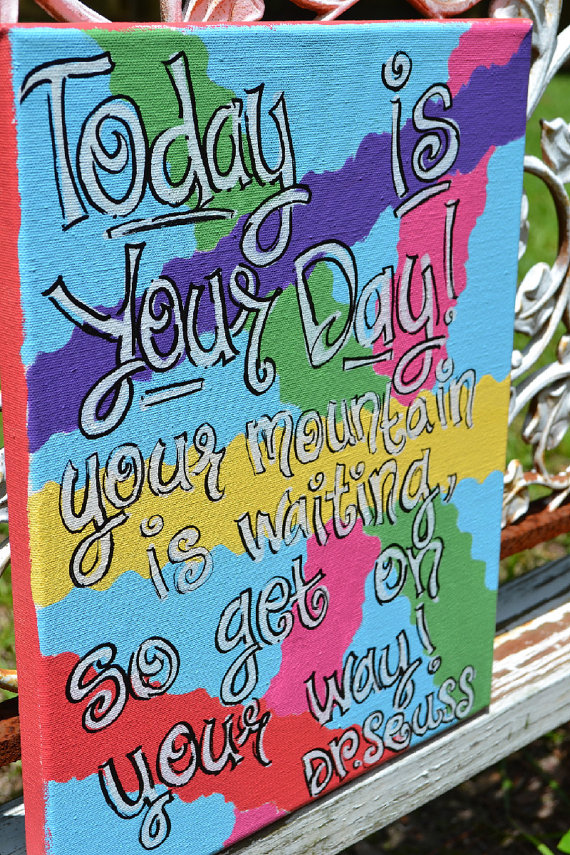 Today is
Your Day!
your mountain
is waiting,
so get on
your way!
Dr. Seuss